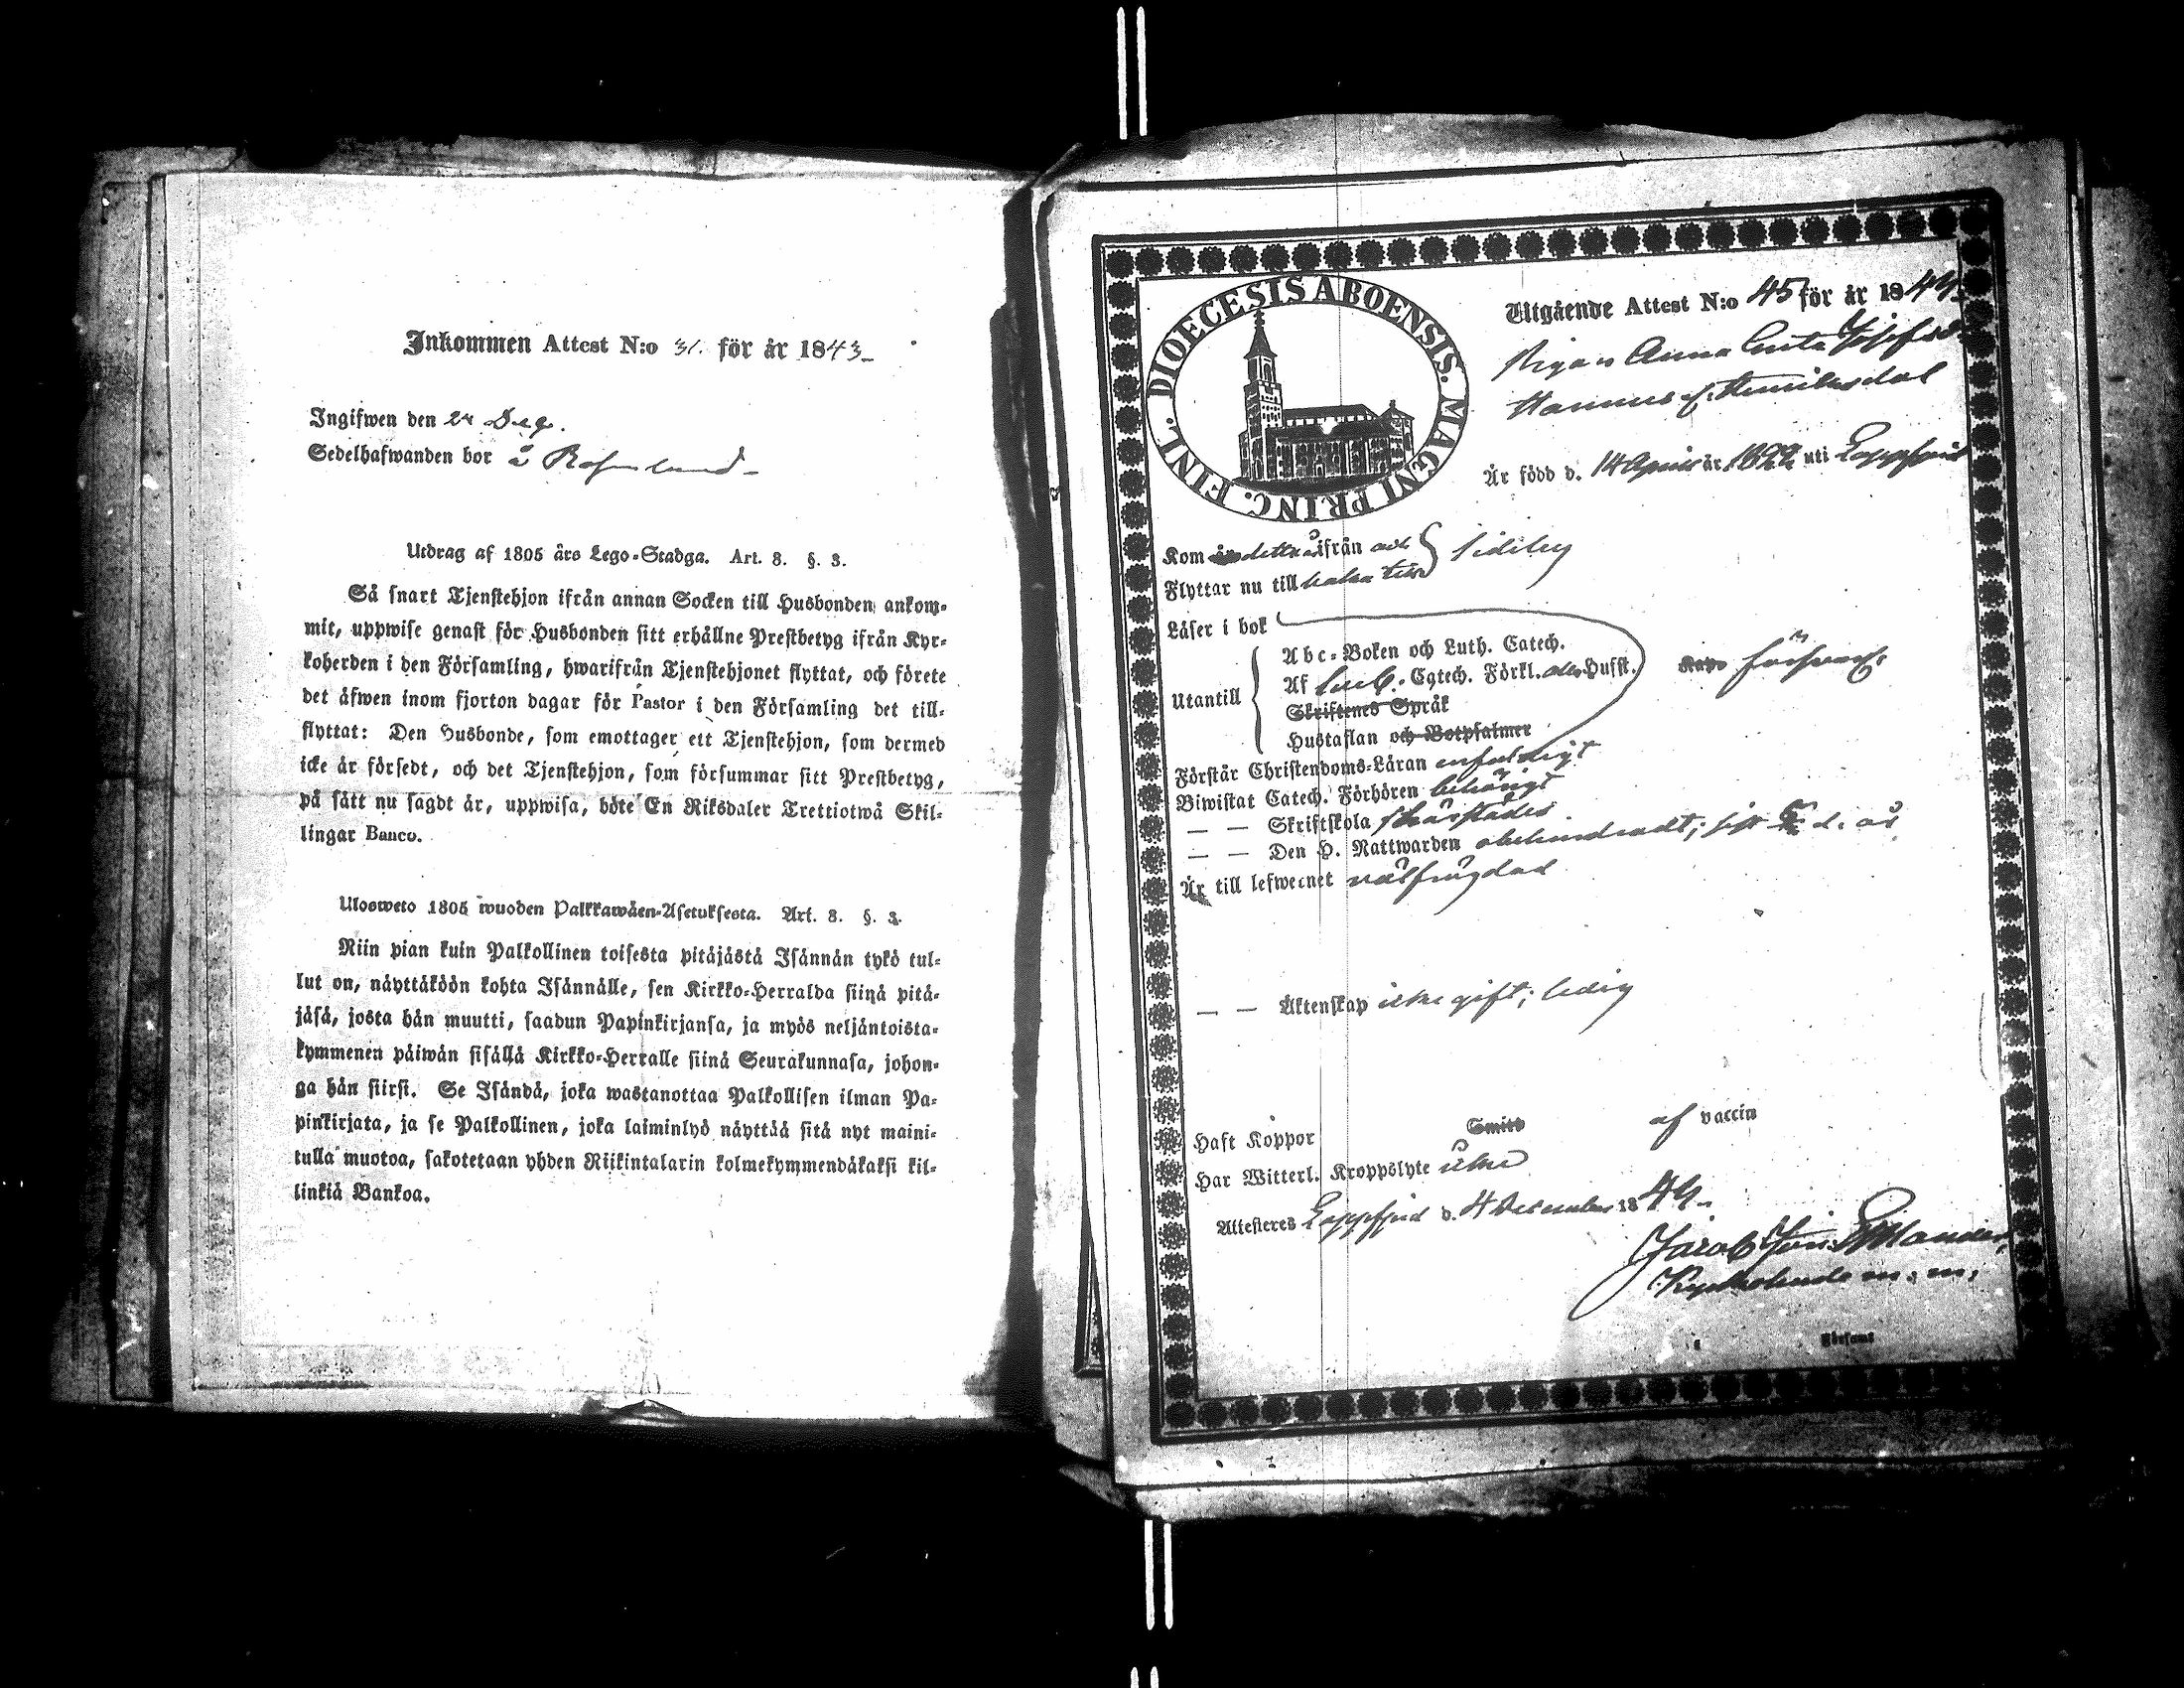 Inkommen Attest N:o 31. för år 1843
Ingifwen den 24 Dec.
Sedelhafwanden bor å Rosenlund
Utdrag af 1805 års Lego-Stadga. Art. 8. §. 3.
Så snart Tjenstehjon ifrån annan Socken till Husbonden ankom-
mit, uppwise genast för Husbonden sitt erhållne Prestbetyg ifrån Kyr-
koherden i den Församling, hwarifrån Tjenstehjonet flyttat, och förete
det äfwen inom fjorton dagar för Pastor i den Församling det till-
flyttat: Den Husbonde, som emottager ett Tjenstehjon, som dermed
icke är försedt, och det Tjenstehjon, som försummar sitt Prestbetyg,
på sätt nu sagdt är, uppwisa, böte En Riksdaler Trettiotwå Skil-
lingar Banco.
Ulosweto 1805 wuoden Palkkawäen-Asetuksesta. Art. 8. §. 3.
Niin pian kuin Palkollinen toisesta pitäjästä Isännän tykö tul-
lut on, näyttäköön kohta Isännälle, sen Kirkko-Herralda siinä pitä-
jäsä, josta hän muutti, saadun Papinkirjansa, ja myös neljäntoista-
kymmenen päiwän sisällä Kirkko-Herralle siinä Seurakunnasa, johon-
ga hän siirsi. Se Isändä, joka wastanottaa Palkollisen ilman Pa-
pinkirjata, ja se Palkollinen, joka laiminlyö näyttää sitä nyt maini-
tulla muotoa, sakotetaan yhden Riikintalarin kolmekymmendäkaksi kil-
linkiä Bankoa.
DIOECESIS ABOENSIS. MAGNI PRINC. FINL.
Utgående Attest N:o 45 för år 1844.
Pigan Anna Greta
Är född d. 14 April år 1822 uti Lappfjerd
Kom detta år ifrån och
Flyttar nu till Sideby
Läser i bok
Utantill
Abc-Boken och Luth. Catech.
Af Luth. Catech. Förkl. Husst.
Skriftenes Språk
Hustaflan och Botpsalmer
förswarl.
Förstår Christendoms-Läran enfaldigt
Biwistat Catech. Förhören behörigt
— — Skriftskola härstädes
— — Den H. Nattwarden obehindradt; sist d. år
Är till lefwernet välfrägdad
— — Äktenskap icke gift; ledig
Haft Koppor Smitt af vaccin
Har Witterl. Kroppslyte icke
Attesteras Lappfjerd d. 4 December 1844.
Jacob
Kyrkoherde m. m.
Församl